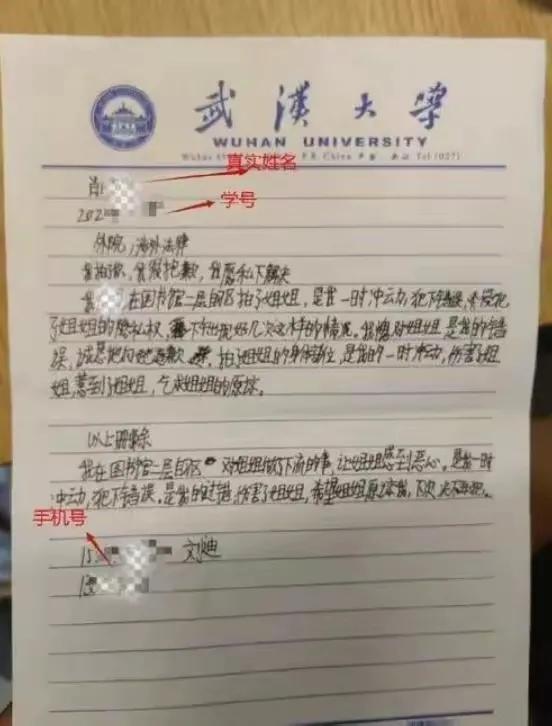 武漢大學
WUHAN UNIVERSITY
Wuhan P.R.China Tel (027)
真实姓名
肖
202
学号
外院，涉外法律
我抽泣，我很抱歉，我愿私下解决
我 在图书馆二层自习区拍了姐姐，是我一时冲动，犯下错误，
了姐姐的隐私权，不出现好几次这样的情况。我愧对姐姐，是我的错
误，诚恳地向 道歉 拍了姐姐的身体部位，是我的一时冲动，伤害了姐
姐，惹到了姐姐，乞求姐姐的原谅。
以上删除
我在图书馆二层自习区 对姐姐做下流的事，让姐姐感到恶心，是我一时
冲动，犯下错误。是我的过错，伤害了姐姐，希望姐姐原谅我，下次决不再犯。
手机号
15